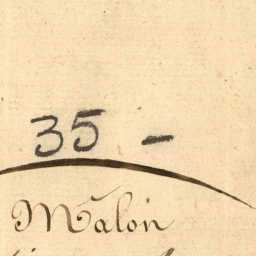 35 -
Malon